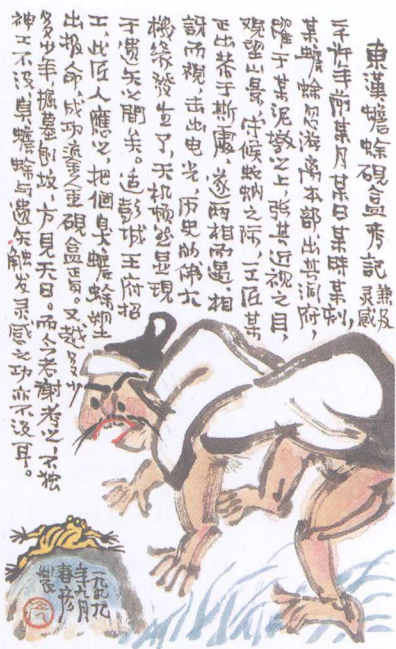 東漢蟾蜍硯盒奇記 兼及灵感
二千许年前某月某日某時某刹，
某蟾蜍忽游离本部出其洞府，
躍于某泥墩之上，張其近視之目，
观望山景，守候蚊蚋之际，一工匠某
正出恭于斯處，遂两相而遇，相
訝而視，击出电光，历史的偶然
機緣發生了，天机頓然显現
于遗矢之間矣。适彭城王府招
工，此匠人應之，把個臭蟾蜍塑
出报命，成功鎏金硯盒焉。又越多少
多少年掘墓创故，方見天日。而今若谢考之，不独
神工不没，臭蟾蜍与遗矢触发灵感之功亦不没耳。
一九九九
年九月
春彦
製